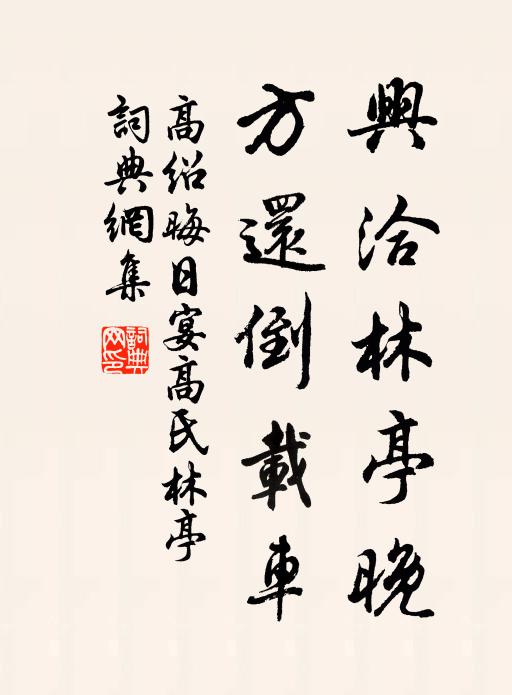 興洽林亭晚
方還倒載車
高紹晦日宴高氏林亭
詞典網集
詞典網印